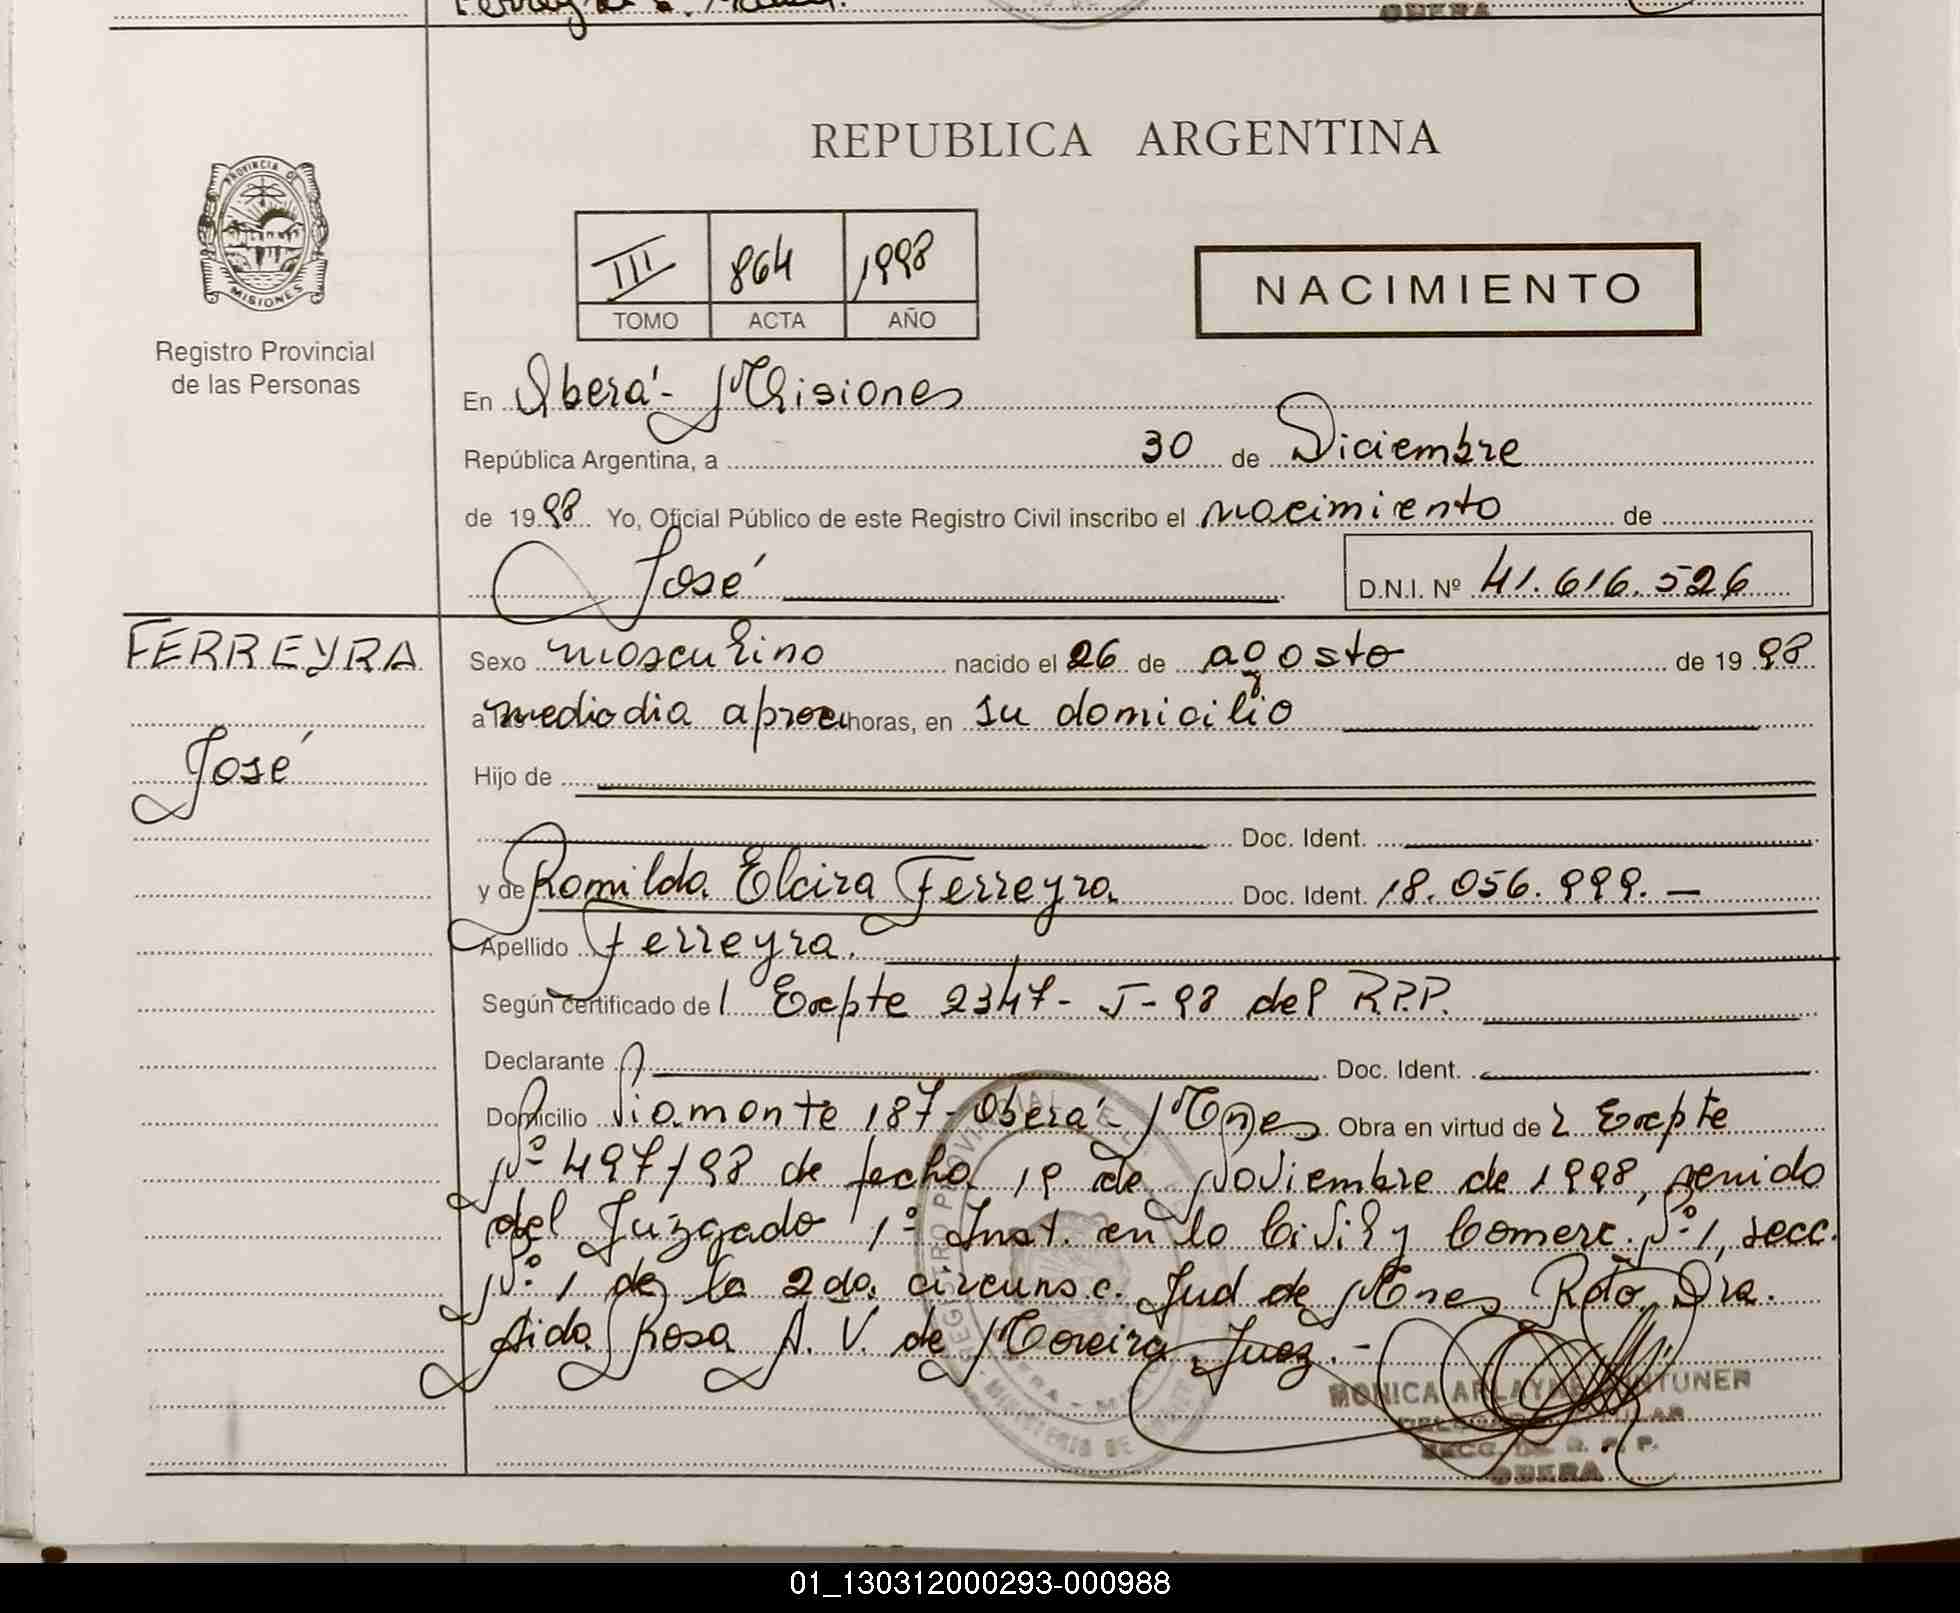 REPUBLICA ARGENTINA
PROVINCIA DE
MISIONES
Registro Provincial
de las Personas
III 864 1998
TOMO ACTA AÑO
NACIMIENTO
En Oberá - Misiones
República Argentina, a 30 de Diciembre
de 1998 Yo, Oficial Público de este Registro Civil inscribo el nacimiento de
José
D.N.I. Nº 41.616.526
FERREYRA
José
Sexo masculino nacido el 26 de agosto de 1998
a las mediodia aprox horas, en su domicilio
Hijo de
Doc. Ident.
y de Romilda Elcira Ferreyra Doc. Ident. 18.056.999.-
Apellido Ferreyra.
Según certificado del Expte 2347- J-98 del R.P.P.
Declarante Doc. Ident.
Domicilio Viamonte 187 - Oberá - Mnes Obra en virtud del Expte
Nº 497/98 de fecha 19 de Noviembre de 1998, venido
del Juzgado 1º Inst. en lo Civil y Comerc. Nº 1, secc.
Nº 1 de la 2da. circunsc. Jud de Mnes Rdo. Dra.
Aida Rosa A. V. de Moreira Juez.-
MONICA
SECC. DE R. P. P.
OBERA
01_130312000293-000988